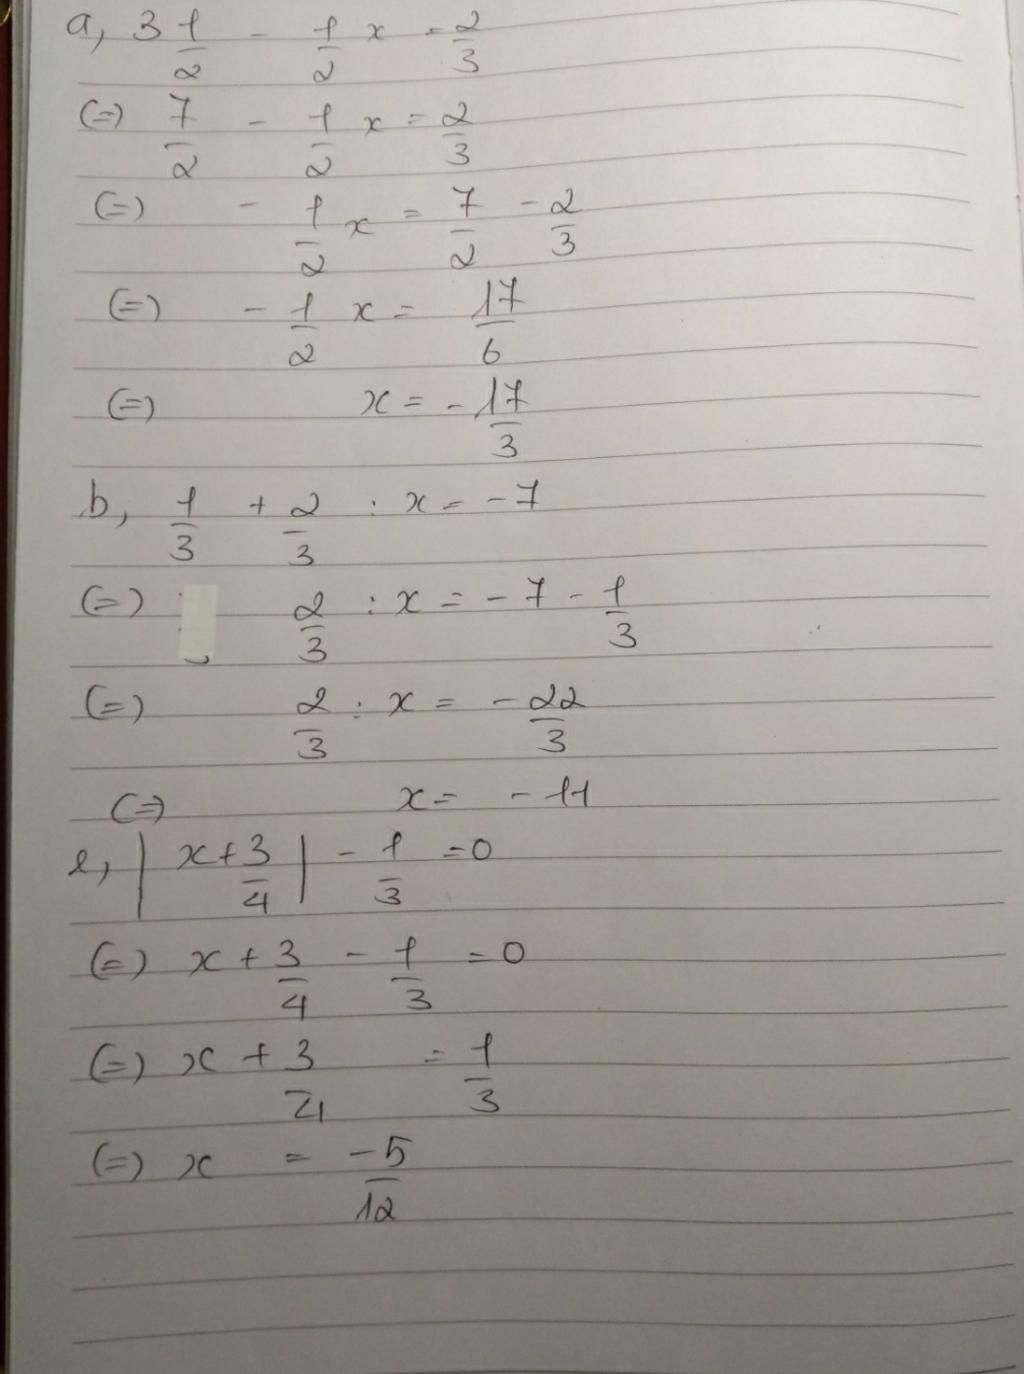 a, 3 1/2 - 1/2 x = 2/3
(=) 7/2 - 1/2 x = 2/3
(=) - 1/2 x = 7/2 - 2/3
(=) - 1/2 x = 17/6
(=) x = - 17/3
b, 1/3 + 2/3 : x = - 7
(=) 2/3 : x = - 7 - 1/3
(=) 2/3 : x = - 22/3
(=) x = - 11
e, | x + 3/4 | - 1/3 = 0
(=) x + 3/4 - 1/3 = 0
(=) x + 3/4 = 1/3
(=) x = -5/12